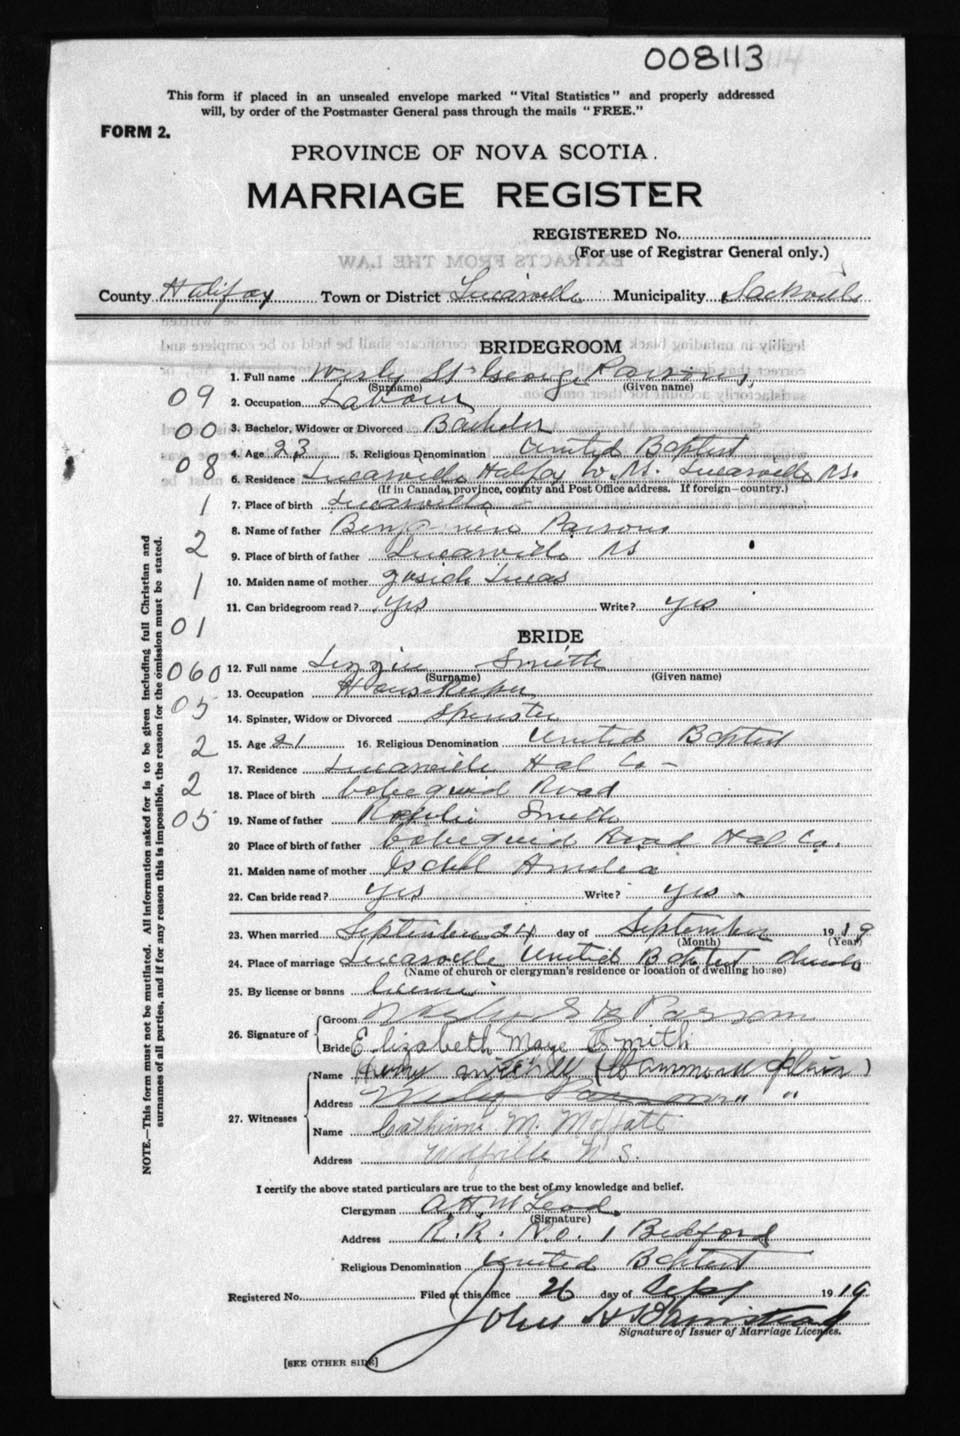 008113
This form if placed in an unsealed envelope marked "Vital Statistics" and properly addressed
will, by order of the Postmaster General pass through the mails "FREE."
FORM 2.
PROVINCE OF NOVA SCOTIA.
MARRIAGE REGISTER
REGISTERED No.
(For use of Registrar General only.)
EXTRACTS FROM THE LAW
County Halifax Town or District Lucasville Municipality Sackville
BRIDEGROOM
1. Full name Wesly St George Parsons,
(Surname) (Given name)
09
2. Occupation Labour
00
3. Bachelor, Widower or Divorced Bachelor
4. Age 23 5. Religious Denomination United Baptist
08
6. Residence Lucasville Halifax Co N.S. Lucasville N.S.
(If in Canada, province, county and Post Office address. If foreign—country.)
1
7. Place of birth Lucasville
8. Name of father Parsons
2
9. Place of birth of father Lucasville NS
1
10. Maiden name of mother Lucas
11. Can bridegroom read? yes Write? yes
01
BRIDE
060
12. Full name Lizzie Smith
(Surname) (Given name)
13. Occupation Housekeeper
05
14. Spinster, Widow or Divorced Spinster
2
15. Age 21 16. Religious Denomination United Baptist
17. Residence Lucasville Hal Co -
2
18. Place of birth Cobequid Road
05
19. Name of father Smith
20 Place of birth of father Cobequid Road Hal Co.
21. Maiden name of mother Amelia
22. Can bride read? yes Write? yes
23. When married September 24 day of September 1919
(Month) (Year)
24. Place of marriage Lucasville United Baptist church
(Name of church or clergyman's residence or location of dwelling house)
25. By license or banns license
26. Signature of Groom Parsons
Bride Elizabeth Maye Smith
27. Witnesses
Name (Hammond Plain)
Address " "
Name Catherine M. Moffatt
Address Wolfville N.S.
I certify the above stated particulars are true to the best of my knowledge and belief.
Clergyman A. H. McLeod.
(Signature)
Address R. R. No. 1 Bedford
Religious Denomination United Baptist
Registered No. Filed at this office 26 day of Sept 1919
John H
Signature of Issuer of Marriage Licenses.
[SEE OTHER SIDE]
NOTE.—This form must not be mutilated. All information asked for is to be given including full Christian and
surnames of all parties, and if for any reason this is impossible, the reason for the omission must be stated.